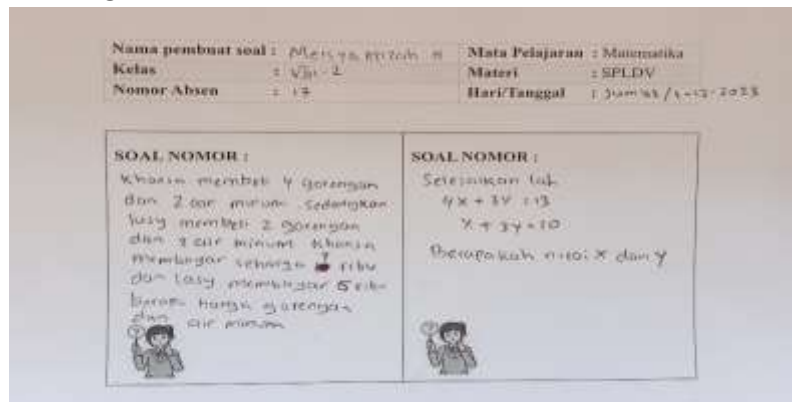 Nama pembuat soal : Meisya n
Kelas : VIII - 2
Nomor Absen : 17
Mata Pelajaran : Matematika
Materi : SPLDV
Hari/Tanggal : Jumat / 1-12-2023
SOAL NOMOR :
Khansa membeli 4 gorengan
dan 2 air minum. Sedangkan
lusy membeli 2 gorengan
dan 2 air minum Khansa
membayar seharga 7 ribu
dan lusy membayar 5 ribu
berapa harga gorengan
dan air minum
SOAL NOMOR :
Selesaikan lah
4x + 3y = 13
x + 3y = 10
Berapakah nilai x dan y